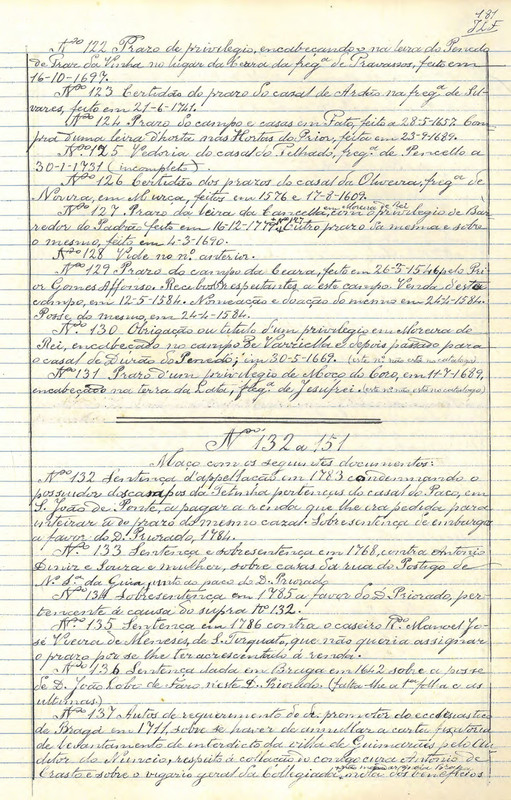 181
J.L.F
Nº 122 Prazo de privilegio, encabeçando-o na leira do Penedo
de Traz da Vinha, no lugar da Ceara da fregª de Travassos, feito em
16-10-1697.
Nº 123 Certidão do prazo do casal de Ardão na fregª de Sil-
vares, feito em 21-6-1741.
Nº 124 Prazo do campo e casas em Fato, feito a 28-5-1657. Com-
pra d'uma leira d'horta nas Hortas do Prior, feita em 23-9-1689.
Nº 125 Vedoria do casal do Telhado, fregª de Pencello a
30-1-1731 (incompleto).
Nº 126 Certidão dos prazos do casal da Oliveira, fregª de
em Murça, feitos em 1576 e 17-8-1609.
Nº 127 Prazo da leira da Cancella, em Moreira de Rei, com o privilegio de Bar-
redor do Padrão feito em 16-12- Outro prazo da mesma e sobre
o mesmo, feito em 4-3-1690.
Nº 128 Vide no nº anterior.
Nº 129 Prazo do campo da Ceara, feito em 26-3-1546 pelo Pri-
or Gomes Affonso. Recibos respeitantes a este campo. Venda d'este
campo, em 12-5-1584. Nomeação e doação do mesmo em 24-4-1584.
Posse do mesmo, em 24-4-1584.
Nº 130 Obrigação ou titulo d'um privilegio em Moreira de
Rei, encabeçado no campo de Varziella e depois passado para
o casal de Durão do Penedo, em 30-5-1669. (este nº não está no catalogo)
Nº 131 Prazo d'um privilegio de Moço do Coro, em 11-7-1689,
encabeçado na terra da Lata, fregª de Jesufrei. (este nº não está no catalogo)
Nºs 132 a 151
Maço com os seguintes documentos:
Nº 132 Sentença d'appellação em 1783 condemnando o
possuidor dos campos da Tetinha pertenças do casal do Paço, em
S. João de Ponte, a pagar a renda que lhe era pedida para
inteirar a do prazo do mesmo cazal. Sobresentença de embargos
a favor do D. Priorado, 1784.
Nº 133 Sentença e sobresentença em 1768, contra Antonio
Diniz e Soura e mulher, sobre casas da rua do Postigo de
N. Sª da Guia, junto ao paço do D. Priorado.
Nº 134 Sobresentença em 1785 a favor do D. Priorado, per-
tencente á causa do supra Nº 132.
Nº 135 Sentença em 1786 contra o caseiro Rdo. Manoel Jo-
sé Vieira de Meneses, de S. Torquato, que não queria assignar
o prazo por se lhe ter acrescentado a renda.
Nº 136 Sentença dada em Braga em 1642 sobre a posse
de D. João Lobo de Faro n'este D. Priorado. (falta-lhe a 1ª folha e as
ultimas.)
Nº 137 Autos de requerimento do dr. promotor do ecclesiastico
de Braga em 1711, sobre se haver de annullar a carta
de levantamento de interdicto da villa de Guimarães pelo Au-
ditor do Nuncio, respeito á collação Antonio de
Crasto e sobre o vigario geral da Collegiada, dos beneficios